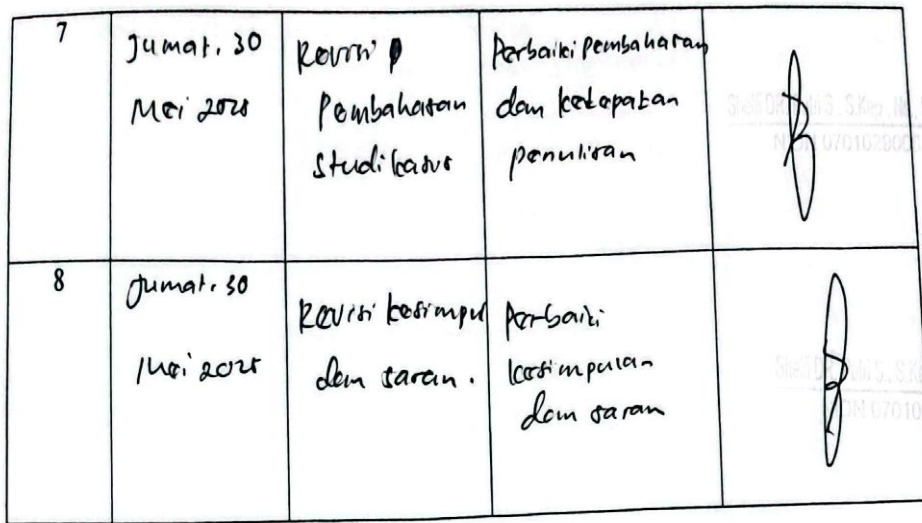 7
Jumat, 30
Mei 2025
Revisi
Pembahasan
Studi kasus
Perbaiki pembahasan
dan ketepatan
penulisan
8
Jumat, 30
Mei 2025
Revisi kesimpul
dan saran.
Perbaiki
kesimpulan
dan saran